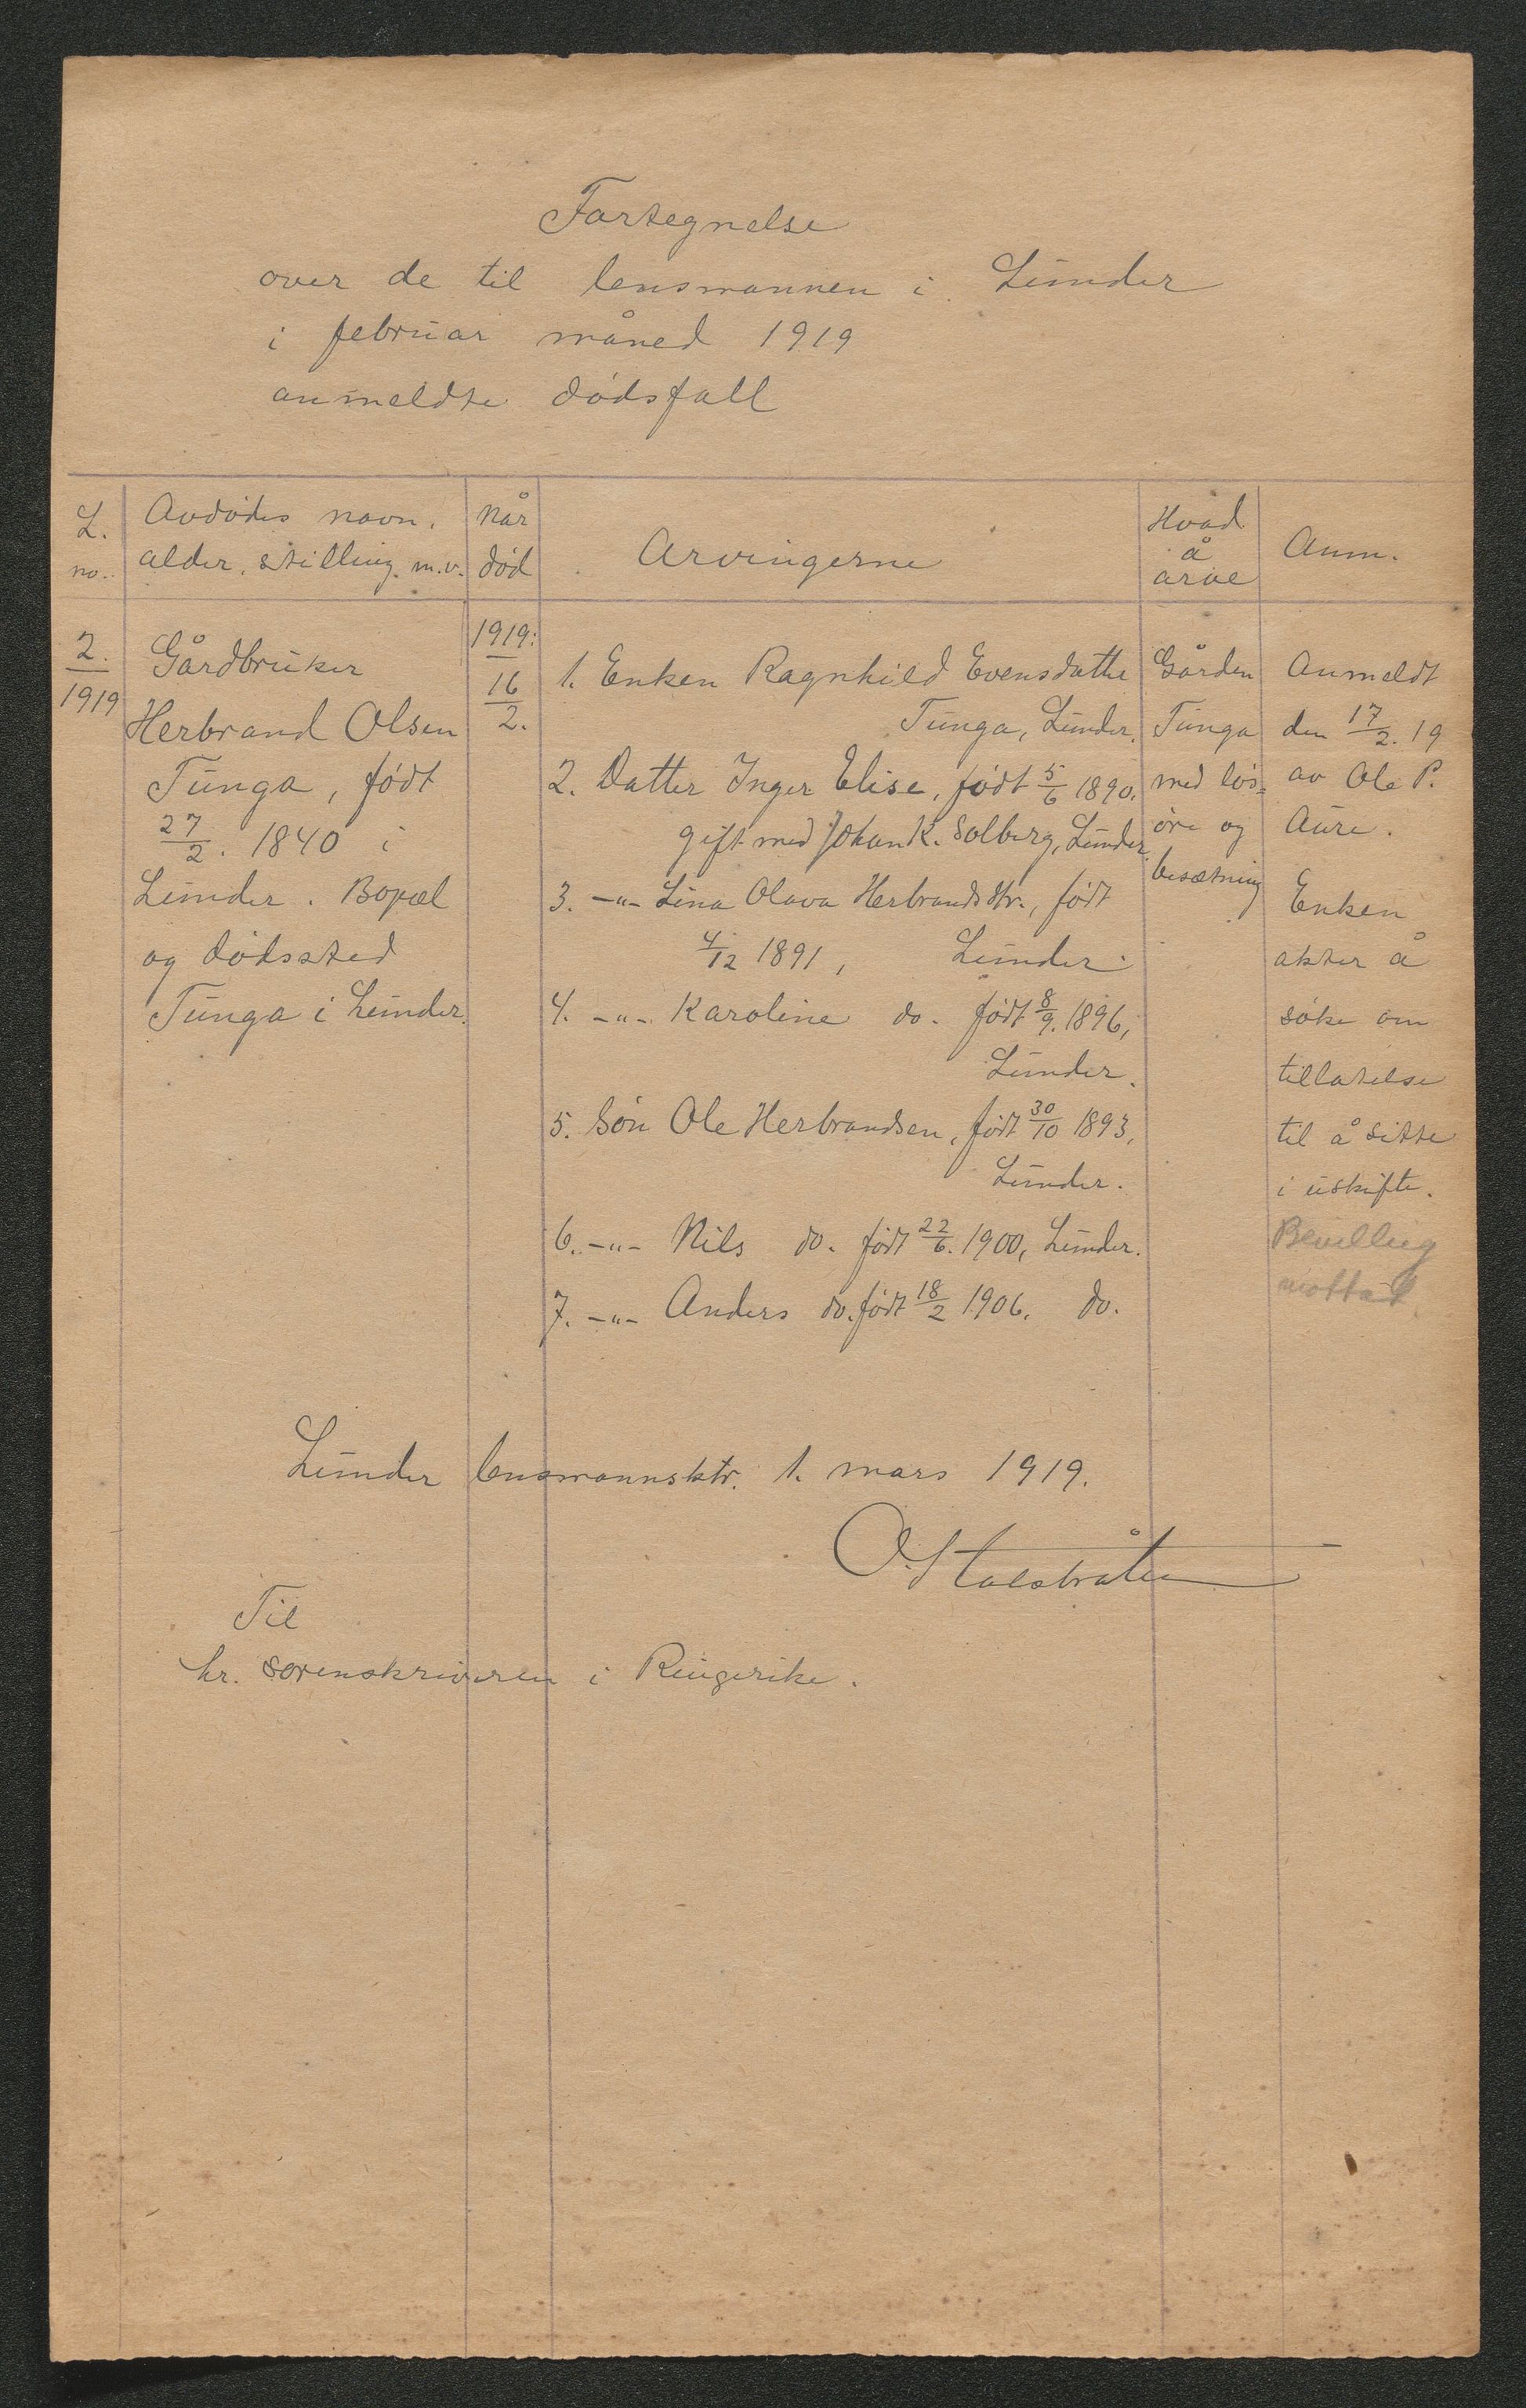 Fortegnelse
over de til lensmannen i Lunder
i februar måned 1919
anmeldte dödsfall
L.
no.
Avdödes navn,
alder, stilling m.v.
Når
död
Arvingerne
Hvad
å
arve
Anm.
2.
1919
Gårdbruker
Herbrand Olsen
Tunga, födt
27/2. 1840 i
Lunder. Bopæl
og dödssted
Tunga i Lunder.
1919:
16/2.
1. Enken Ragnhild Evensdatter
Tunga, Lunder.
2. Datter Inger Elise, födt 5/6 1890.
gift med Johan K. Solberg, Lunder.
3. -"- Lina Olava Herbrandsdtr., födt
4/12 1891, Lunder.
4. -"- Karoline do. födt 8/9. 1896,
Lunder.
5. Sön Ole Herbrandsen, födt 30/10 1893,
Lunder.
6. -"- Nils do. födt 22/6. 1900, Lunder.
7. -"- Anders do. födt 18/2 1906. do.
Gården
Tunga
med lös=
öre og
besætning
Anmeldt
den 17/2. 19
av Ole P.
Aure.
Enken
akter å
söke om
tillatelse
til å sitte
i uskifte.
Bevilling
mottat
Lunder lensmannsktr. 1. mars 1919.
Til
hr. sorenskriveren i Ringerike.